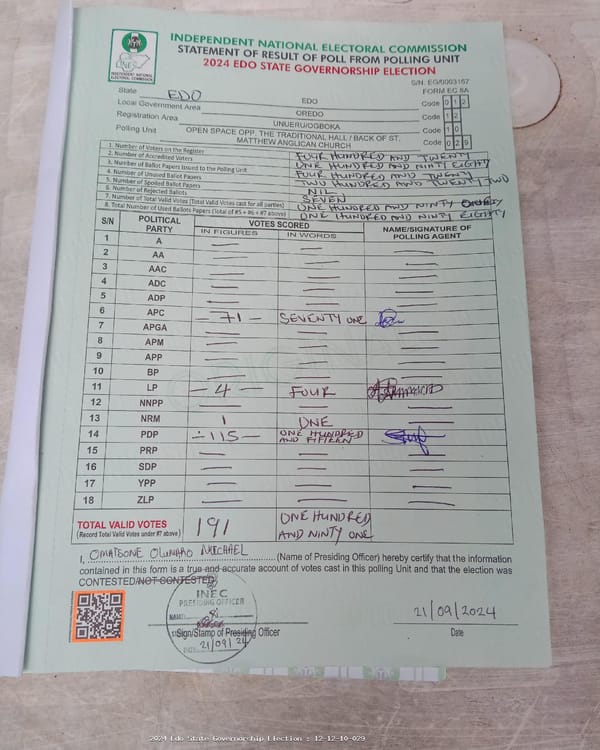 INDEPENDENT NATIONAL ELECTORAL COMMISSION
STATEMENT OF RESULT OF POLL FROM POLLING UNIT
2024 EDO STATE GOVERNORSHIP ELECTION
INDEPENDENT NATIONAL ELECTORAL COMMISSION
S/N. EG/0003167
FORM EC 8A
State EDO EDO Code 0 1 2
Local Government Area OREDO Code 1 2
Registration Area UNUERU/OGBOKA Code 1 0
Polling Unit OPEN SPACE OPP. THE TRADITIONAL HALL / BACK OF ST. MATTHEW ANGLICAN CHURCH Code 0 2 9
1. Number of Voters on the Register FOUR HUNDRED AND TWENTY
2. Number of Accredited Voters ONE HUNDRED AND NINTY EIGHTY
3. Number of Ballot Papers Issued to the Polling Unit FOUR HUNDRED AND TWENTY
4. Number of Unused Ballot Papers TWO HUNDRED AND TWENTY TWO
5. Number of Spoiled Ballot Papers NIL
6. Number of Rejected Ballots SEVEN
7. Number of Total Valid Votes (Total Valid Votes cast for all parties) ONE HUNDRED AND NINTY
8. Total Number of Used Ballots Papers (Total of #5 + #6 + #7 above) ONE HUNDRED AND NINTY EIGHTY
S/N POLITICAL PARTY VOTES SCORED NAME/SIGNATURE OF POLLING AGENT
IN FIGURES IN WORDS
1 A
2 AA
3 AAC
4 ADC
5 ADP
6 APC – 71 – SEVENTY ONE
7 APGA
8 APM
9 APP
10 BP
11 LP – 4 – FOUR
12 NNPP
13 NRM 1 ONE
14 PDP – 115 – ONE HUNDRED AND FIFTEEN
15 PRP
16 SDP
17 YPP
18 ZLP
TOTAL VALID VOTES 191 ONE HUNDRED AND NINTY ONE
(Record Total Valid Votes under #7 above)
I, MICHAEL (Name of Presiding Officer) hereby certify that the information
contained in this form is a true and accurate account of votes cast in this polling Unit and that the election was
CONTESTED/NOT CONTESTED
INEC
PRESIDING OFFICER
NAME:
Sign/Stamp of Presiding Officer
DATE: 21/09/24
21/09/2024
Date
2024 Edo State Governorship Election : 12-12-10-029